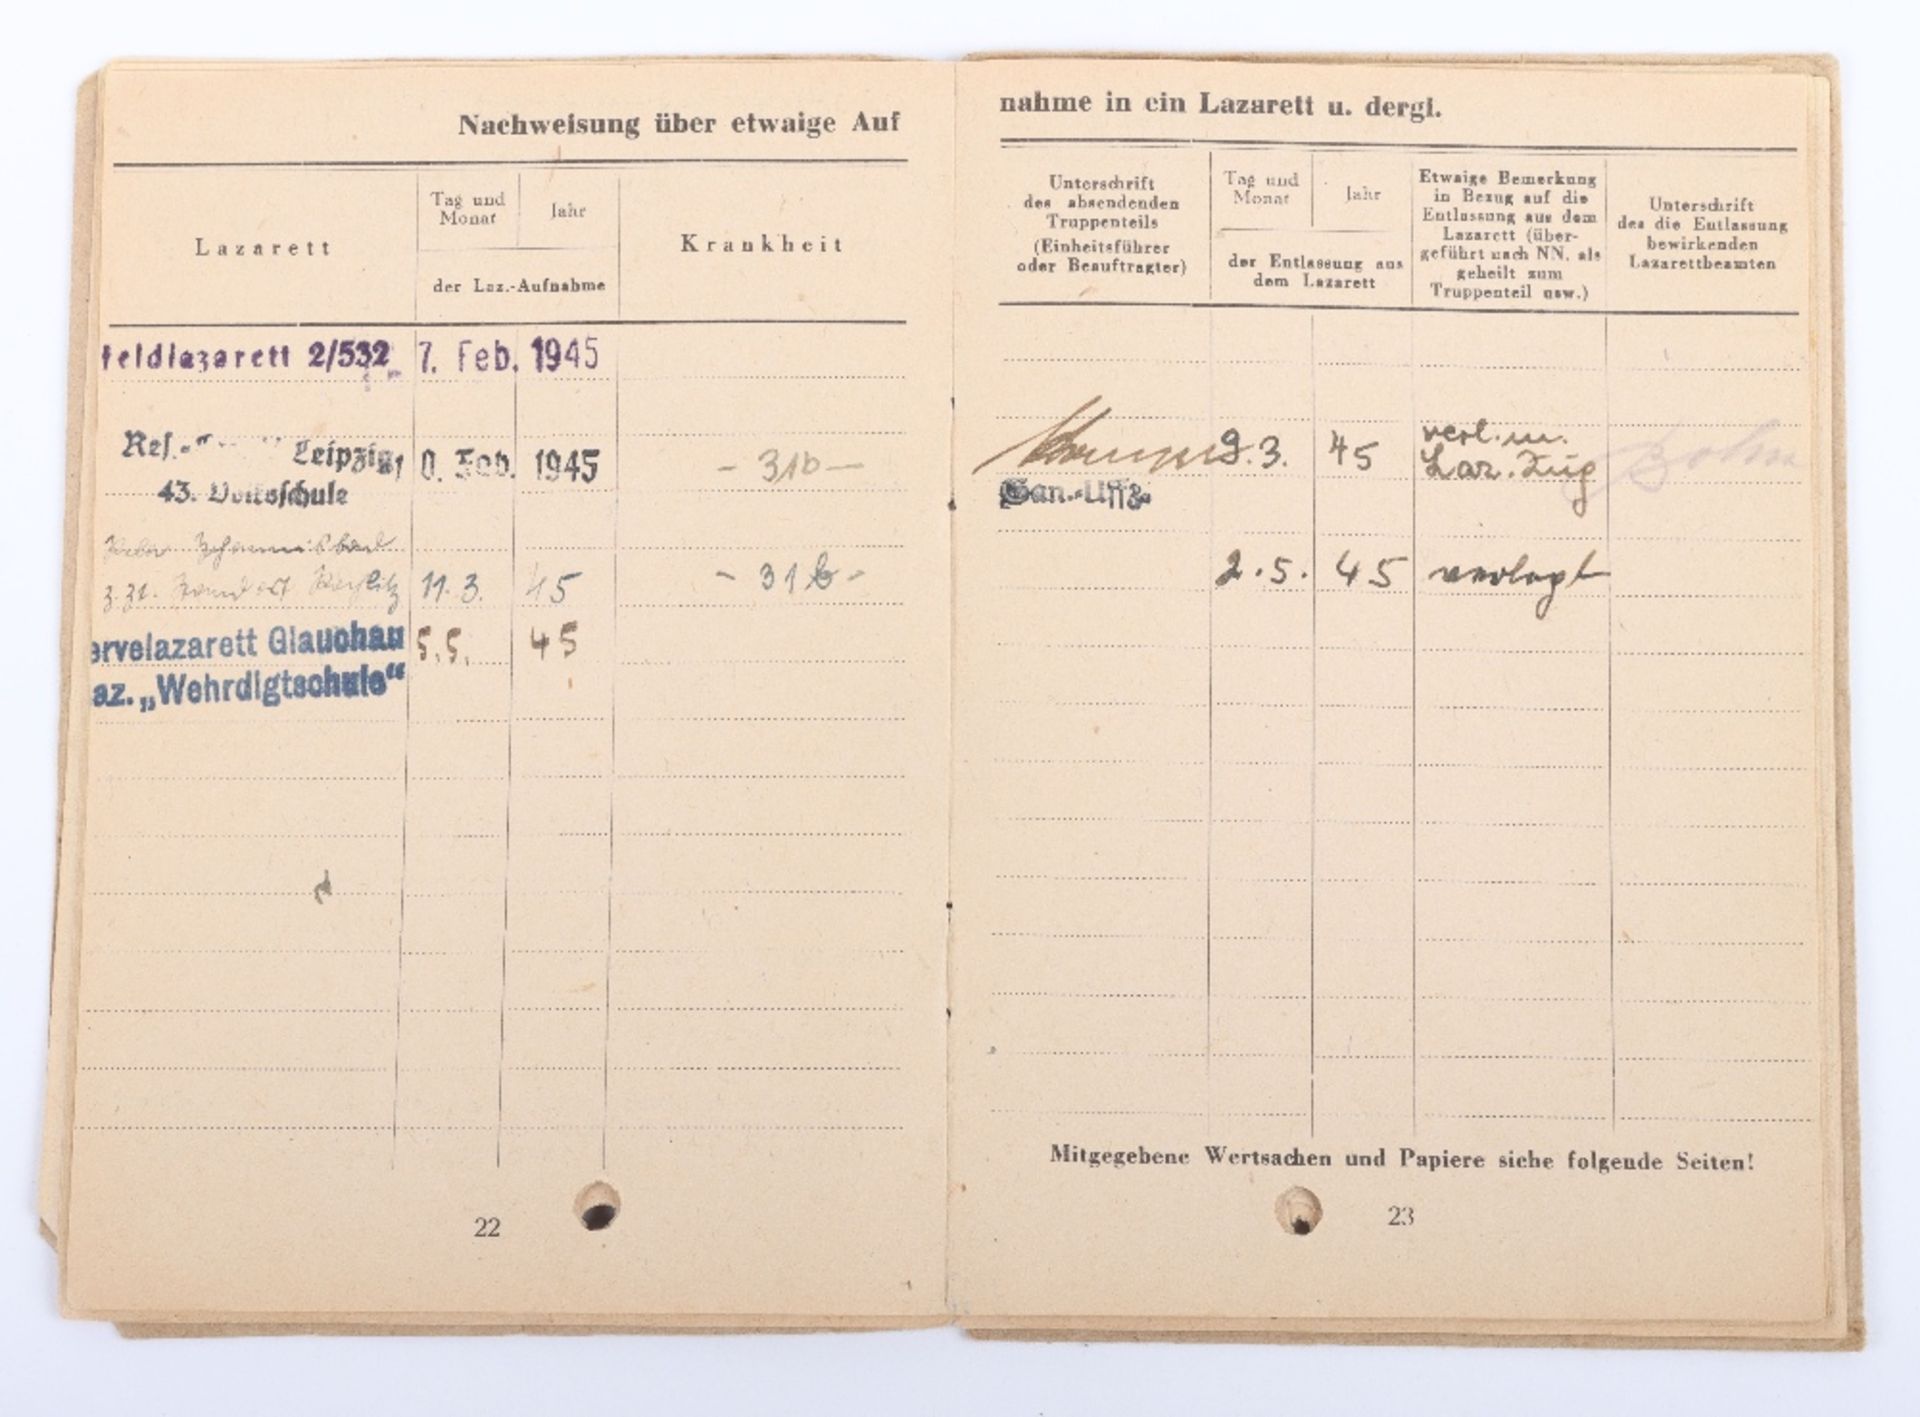 Nachweisung über etwaige Auf
Lazarett
Tag und
Monat
Jahr
der Laz.-Aufnahme
Krankheit
feldlazarett 2/532 7. Feb. 1945
Res.- Leipzig 0. Feb. 1945 - 31b -
43. Volksschule
z. Zt. 11.3. 45 - 31b -
ervelazarett Glauchau 5.5. 45
az. „Wehrdigtschule“
22
nahme in ein Lazarett u. dergl.
Unterschrift
des absendenden
Truppenteils
(Einheitsführer
oder Beauftragter)
Tag und
Monat
Jahr
der Entlassung aus
dem Lazarett
Etwaige Bemerkung
in Bezug auf die
Entlassung aus dem
Lazarett (über-
geführt nach NN, als
geheilt zum
Truppenteil usw.)
Unterschrift
des die Entlassung
bewirkenden
Lazarettbeamten
9.3. 45 verl. m.
Laz. Zug
San.-Uffz.
2.5. 45 verlegt
Mitgegebene Wertsachen und Papiere siehe folgende Seiten!
23